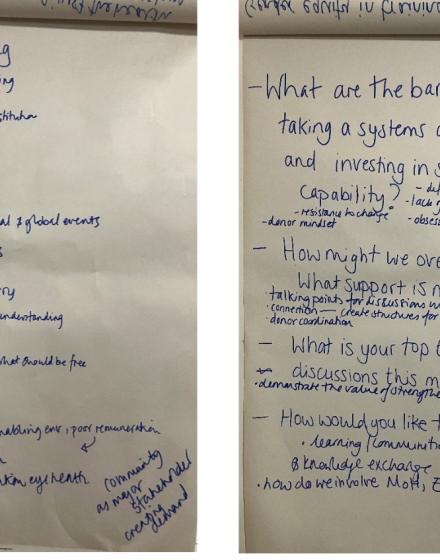 g
ng
stitution
al & global events
s
ry
understanding
what should be free
nabling env, poor remuneration
eye health
community
as major
stakeholder
creating
demand
- What are the bar
taking a systems
and investing in s
capability?
- lack
- resistance to change
- donor mindset
- obses
- How might we ove
What support is n
• talking points for discussions w
• connection — create structures for
• donor coordination
- What is your top t
discussions this m
• demonstrate the value of strengthe
- How would you like t
• learning / communiti
& knowledge exchange
• how do we involve MoH, E